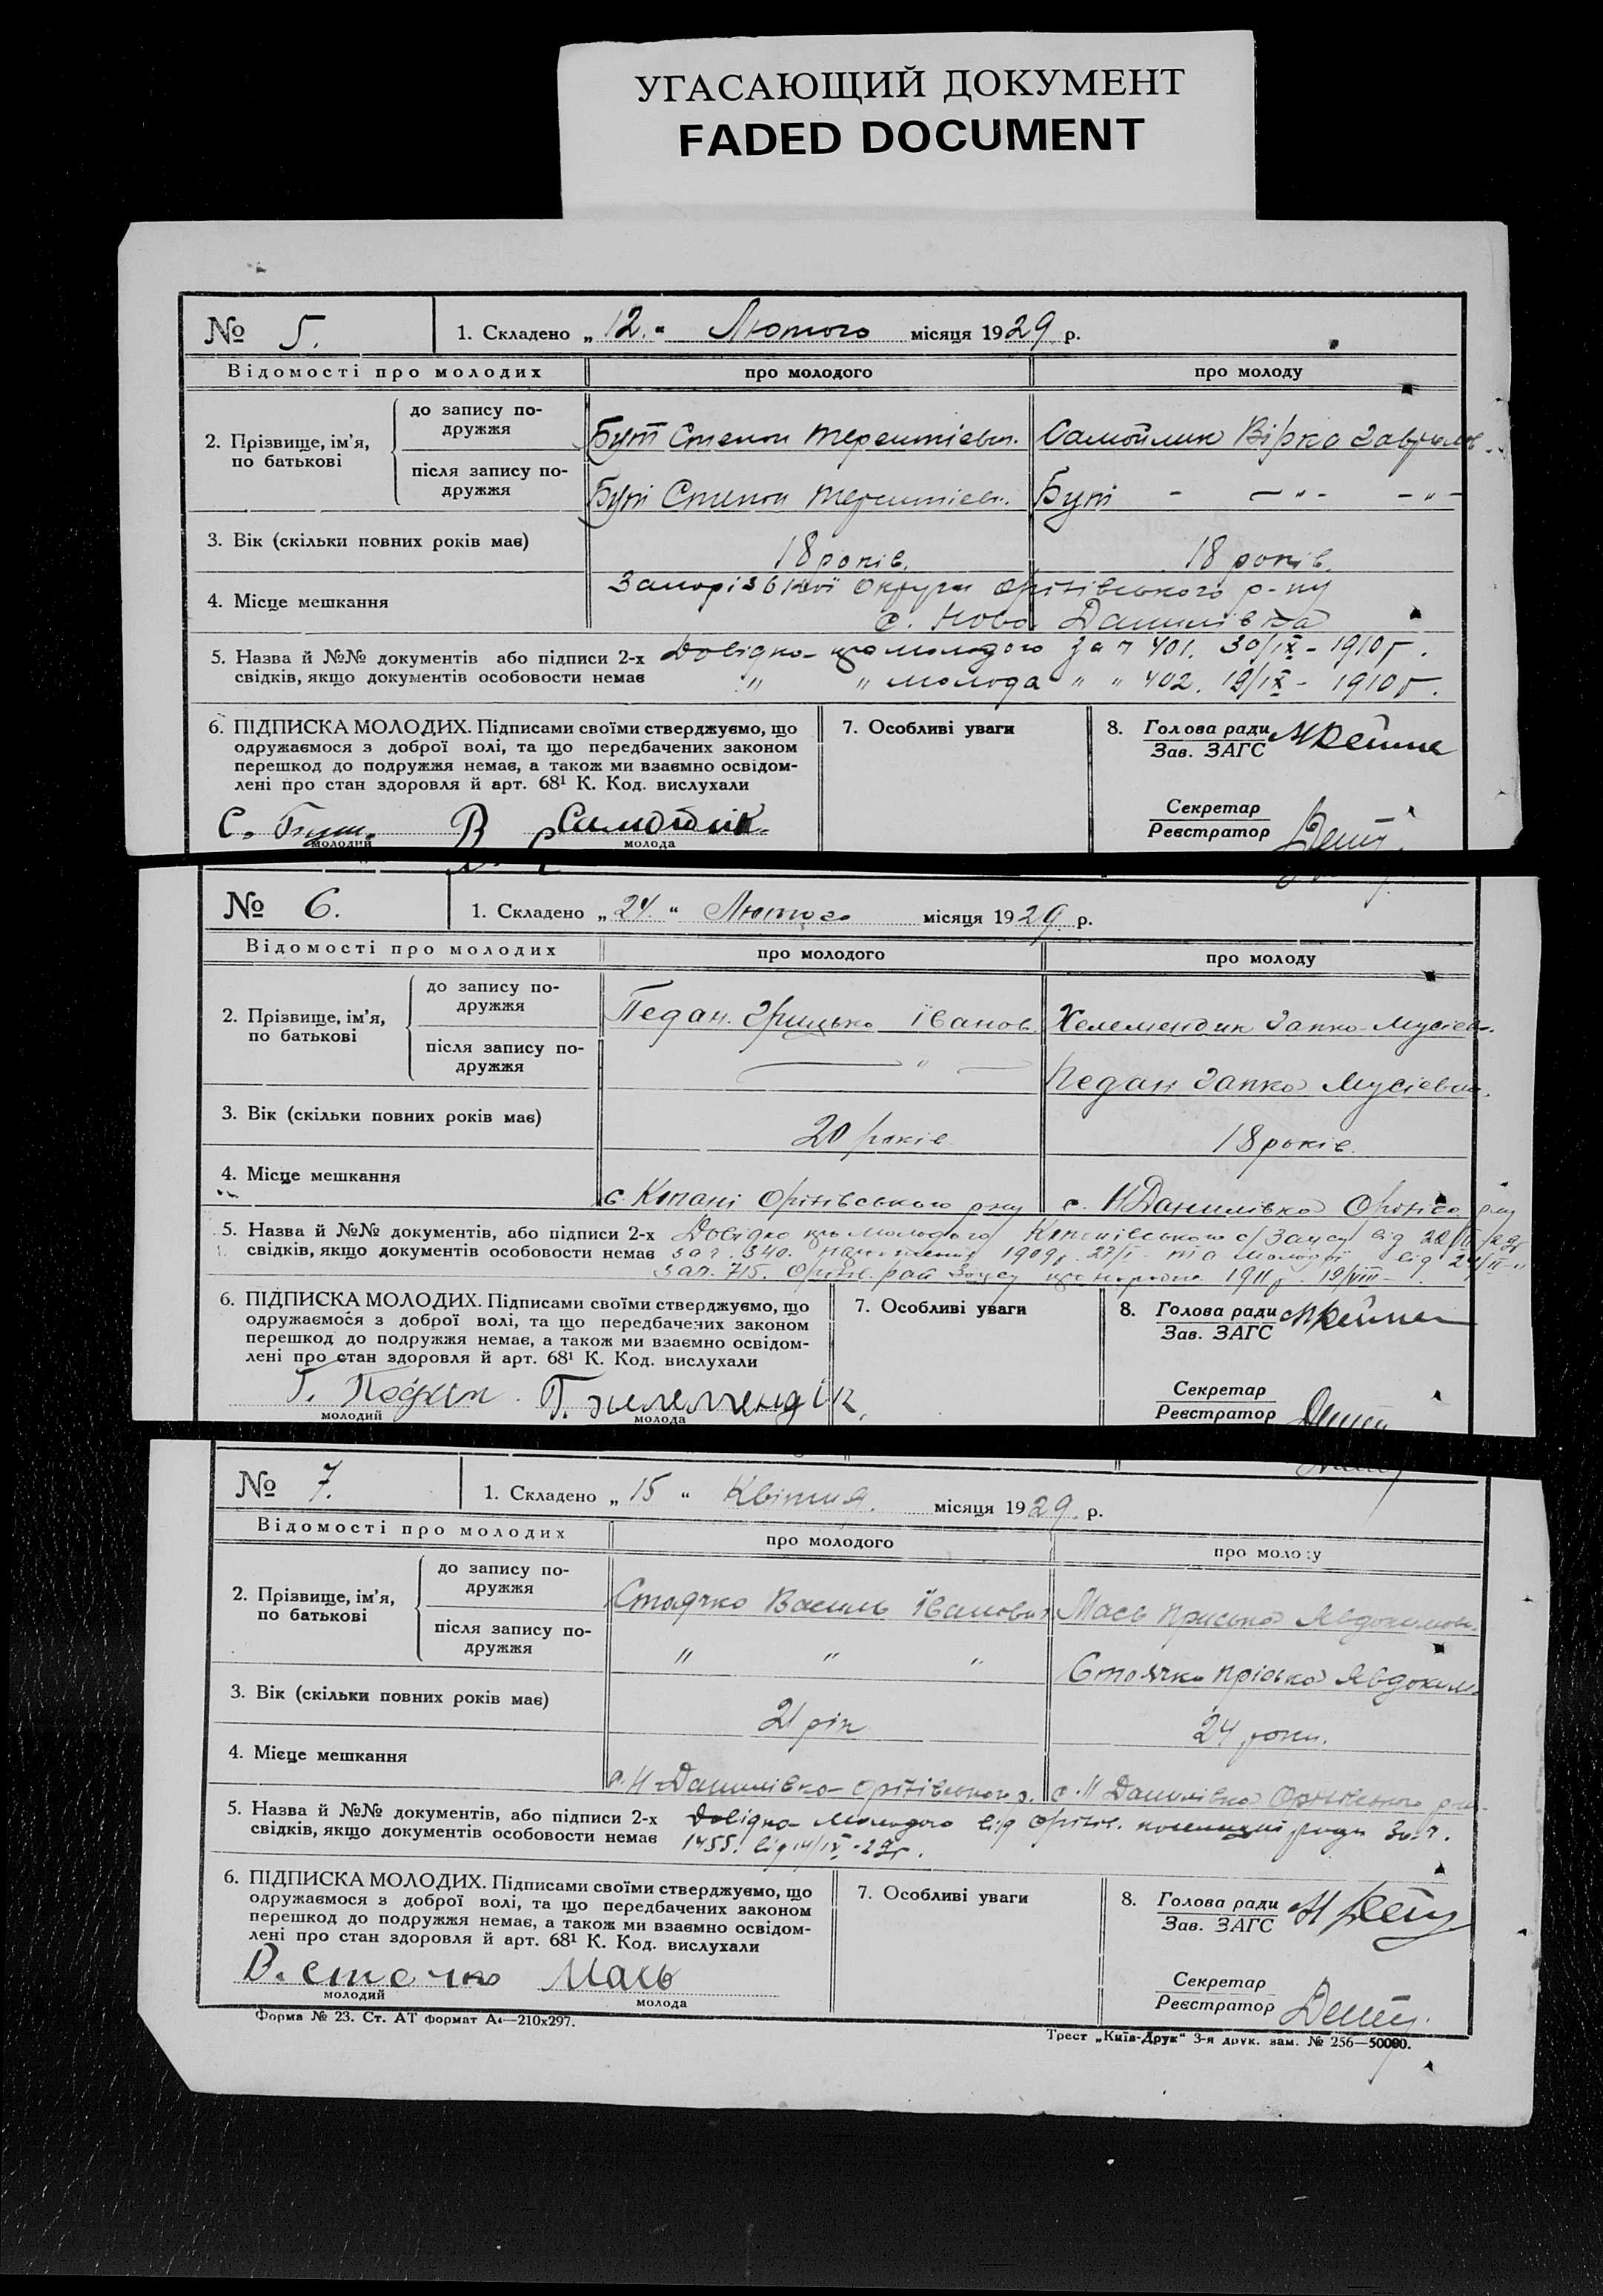 УГАСАЮЩИЙ ДОКУМЕНТ
FADED DOCUMENT
№ 5. 1. Складено „12.“ Лютого місяця 1929 р.
Відомості про молодих про молодого про молоду
2. Прізвище, ім’я, по батькові
до запису по-
дружжя
Бут Степан Терентієвич. Самойлик Вірка Гаврилов
після запису по-
дружжя
Бут Степан Терентієвич. Бут - - " - - " -
3. Вік (скільки повних років має) 18 років. 18 років.
4. Місце мешкання Запорізької Округи Оріхівського р-ну
с. Ново Данилівка
5. Назва й №№ документів або підписи 2-х Довідка про молодого за ч 401. 30/ІХ - 1910 р.
свідків, якщо документів особовости немає " " молода " " 402. 19/ІХ - 1910 р.
6. ПІДПИСКА МОЛОДИХ. Підписами своїми стверджуємо, що
одружаємося з доброї волі, та що передбачених законом
перешкод до подружжя немає, а також ми взаємно освідом-
лені про стан здоровля й арт. 68¹ К. Код. вислухали
С. Бут. В Самойлік.
молодий молода
7. Особливі уваги
8. Голова ради
Зав. ЗАГС
Секретар
Реєстратор
№ 6. 1. Складено „24.“ Лютого місяця 1929 р.
Відомості про молодих про молодого про молоду
2. Прізвище, ім’я,
по батькові
до запису по-
дружжя
Педан. Грицько Іванов. Хелемендик Гапка Мусієв.
після запису по-
дружжя
— " — Педан Гапка Мусієвна.
3. Вік (скільки повних років має) 20 років 18 років.
4. Місце мешкання с. Копані Оріхівського р-ну с. Н Данилівка Оріхівс. р-ну
5. Назва й №№ документів, або підписи 2-х Довідка про молодого
свідків, якщо документів особовости немає за ч. 340. 1909 р. 27/І
за ч. 715. Оріхів. рай Загсу 1911 р. 19/VIII -
6. ПІДПИСКА МОЛОДИХ. Підписами своїми стверджуємо, що
одружаємося з доброї волі, та що передбачених законом
перешкод до подружжя немає, а також ми взаємно освідом-
лені про стан здоровля й арт. 68¹ К. Код. вислухали
Г. Педан.
молодий молода
7. Особливі уваги
8. Голова ради
Зав. ЗАГС
Секретар
Реєстратор
№ 7. 1. Складено „15“ Квітня. місяця 1929 р.
Відомості про молодих про молодого про молоду
2. Прізвище, ім’я,
по батькові
до запису по-
дружжя
Стоячко Василь Іванович Мась Приська Явдокимов.
після запису по-
дружжя
" " " Стоячко Пріська Явдоким.
3. Вік (скільки повних років має) 21 рік 24 роки.
4. Місце мешкання с. Н-Данилівка Оріхівського р. с. Н Данилівка Оріхівського р-ну
5. Назва й №№ документів, або підписи 2-х Довідка молодого від Оріхів. ради За ч.
свідків, якщо документів особовости немає 1455. від 14/IV-29 р.
6. ПІДПИСКА МОЛОДИХ. Підписами своїми стверджуємо, що
одружаємося з доброї волі, та що передбачених законом
перешкод до подружжя немає, а також ми взаємно освідом-
лені про стан здоровля й арт. 68¹ К. Код. вислухали
В. Стоячко Мась
молодий молода
7. Особливі уваги
8. Голова ради
Зав. ЗАГС
Секретар
Реєстратор
Форма № 23. Ст. АТ формат А4—210х297.
Трест „Київ-Друк“ 3-я друк. зам. № 256—50000.